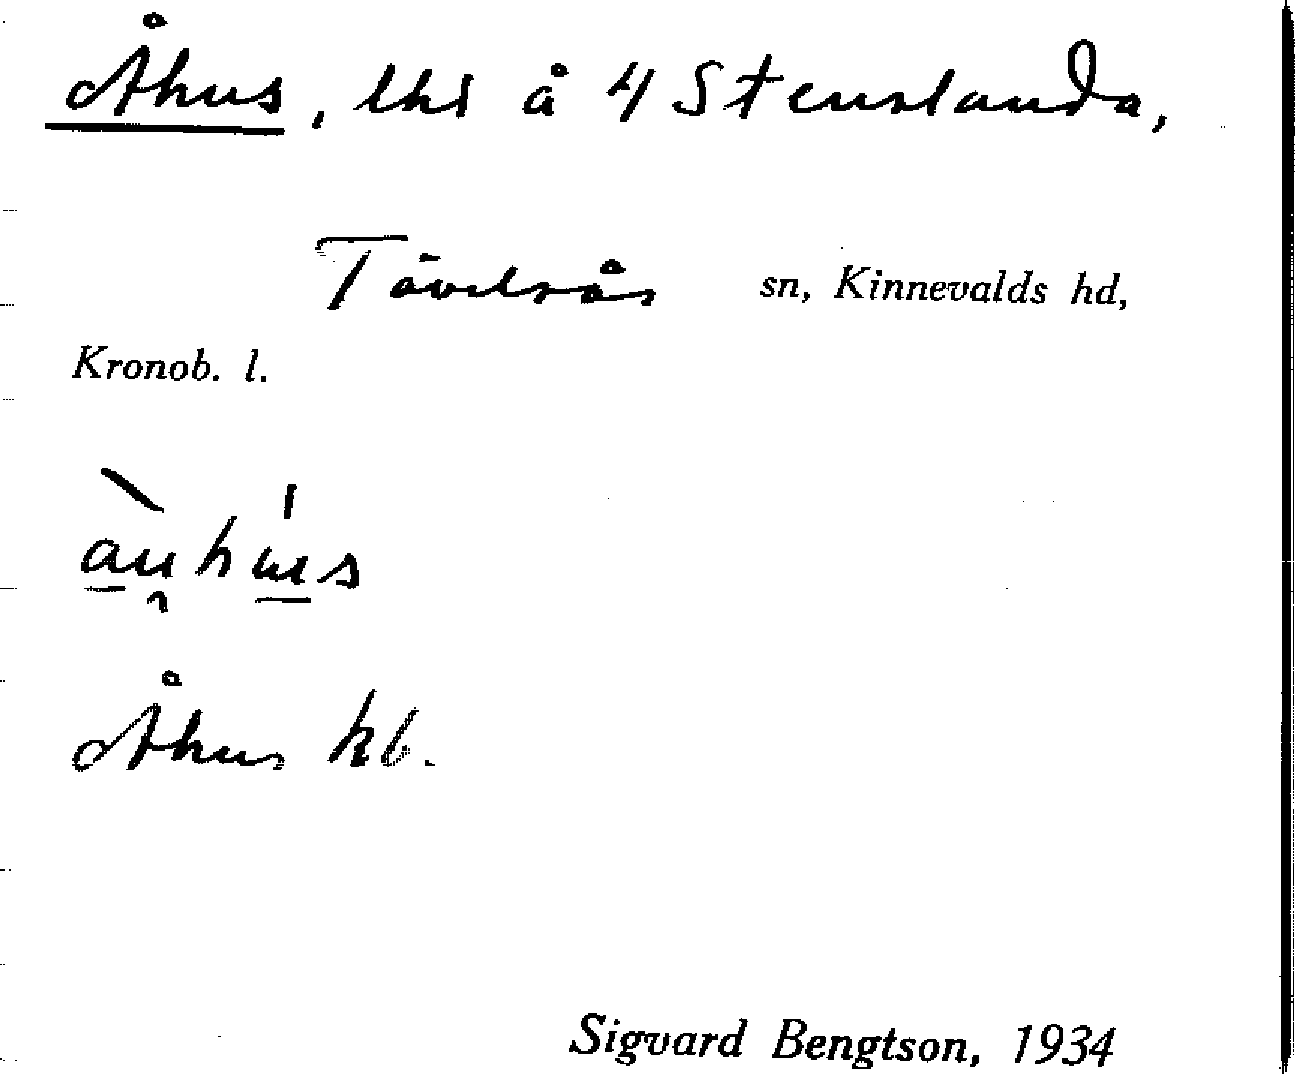 Åhus, lht å 4 Stenslanda,
Tävelsås sn, Kinnevalds hd,
Kronob. l.
Åhus kb.
Sigvard Bengtson, 1934